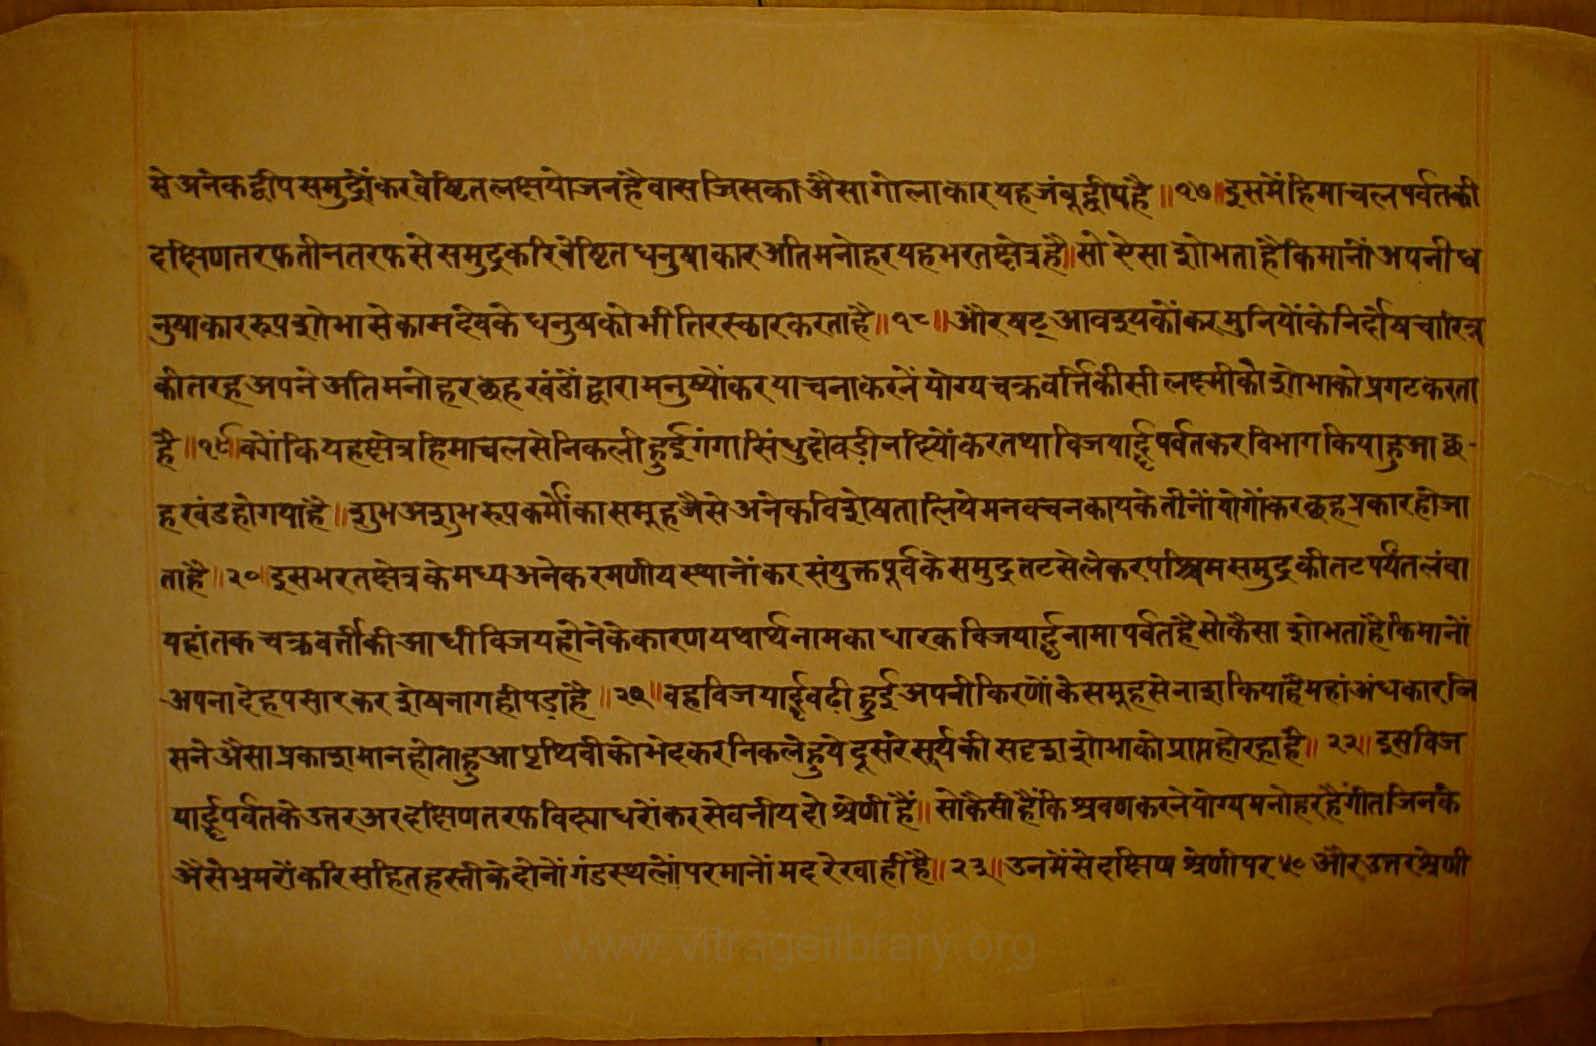 से अनेक द्वीप समुद्रोंकर वेष्टित लक्षयोजन है वास जिसका अैसा गोलाकार यह जंबूद्वीप है ॥ १७ ॥ इसमें हिमाचल पर्वतकी
दक्षिण तरफ तीन तरफ से समुद्र करि वेष्टित धनुषाकार अति मनोहर यह भरतक्षेत्र है ॥ सो ऐसा शोभता है कि मानों अपनी ध
नुषाकार रूप शोभा से कामदेव के धनुष को भी तिरस्कार करता है ॥ १८ ॥ और षट् आवश्यकोंकर मुनियों के निर्दोष चारित्र
की तरह अपने अति मनोहर छह खंडों द्वारा मनुष्योंकर याचना करनें योग्य चक्रवर्त्ति कीसी लक्ष्मी की शोभा को प्रगट करता
है ॥ १९ ॥ क्यों कि यह क्षेत्र हिमाचल से निकली हुई गंगा सिंधु दो वडी नदियोंकर तथा विजयार्द्ध पर्वत कर विभाग किया हुआ छ-
ह खंड हो गया है ॥ शुभ अशुभ रूप कर्मों का समूह जैसे अनेक विशेषता लिये मन वचन काय के तीनों योगोंकर छह प्रकार हो जा
ता है ॥ २० ॥ इस भरतक्षेत्र के मध्य अनेक रमणीय स्थानोंकर संयुक्त पूर्व के समुद्र तट से लेकर पश्चिम समुद्र की तट पर्यंत लंवा
यहां तक चक्रवर्ती की आधी विजय होने के कारण यथार्थ नाम का धारक विजयार्द्ध नामा पर्वत है सो कैसा शोभता है कि मानों
अपना देह पसार कर शेषनाग ही पडा है ॥ २१ ॥ वह विजयार्द्ध वढी हुई अपनी किरणों के समूह से नाश किया है महां अंधकार जि
सने अैसा प्रकाशमान होता हुआ पृथिवी को भेदकर निकले हुये दूसरे सूर्य की सदृश शोभा को प्राप्त हो रहा है ॥ २२ ॥ इस विज
यार्द्ध पर्वत के उत्तर अर दक्षिण तरफ विद्याधरोंकर सेवनीय दो श्रेणी हैं ॥ सो कैसी हैं कि श्रवण करने योग्य मनोहर है गीत जिनके
अैसे भ्रमरों करि सहित हस्ती के दोनों गंडस्थलों पर मानों मद रेखा ही है ॥ २३ ॥ उनमें से दक्षिण श्रेणी पर ५० और उत्तर श्रेणी
www.vitragelibrary.org